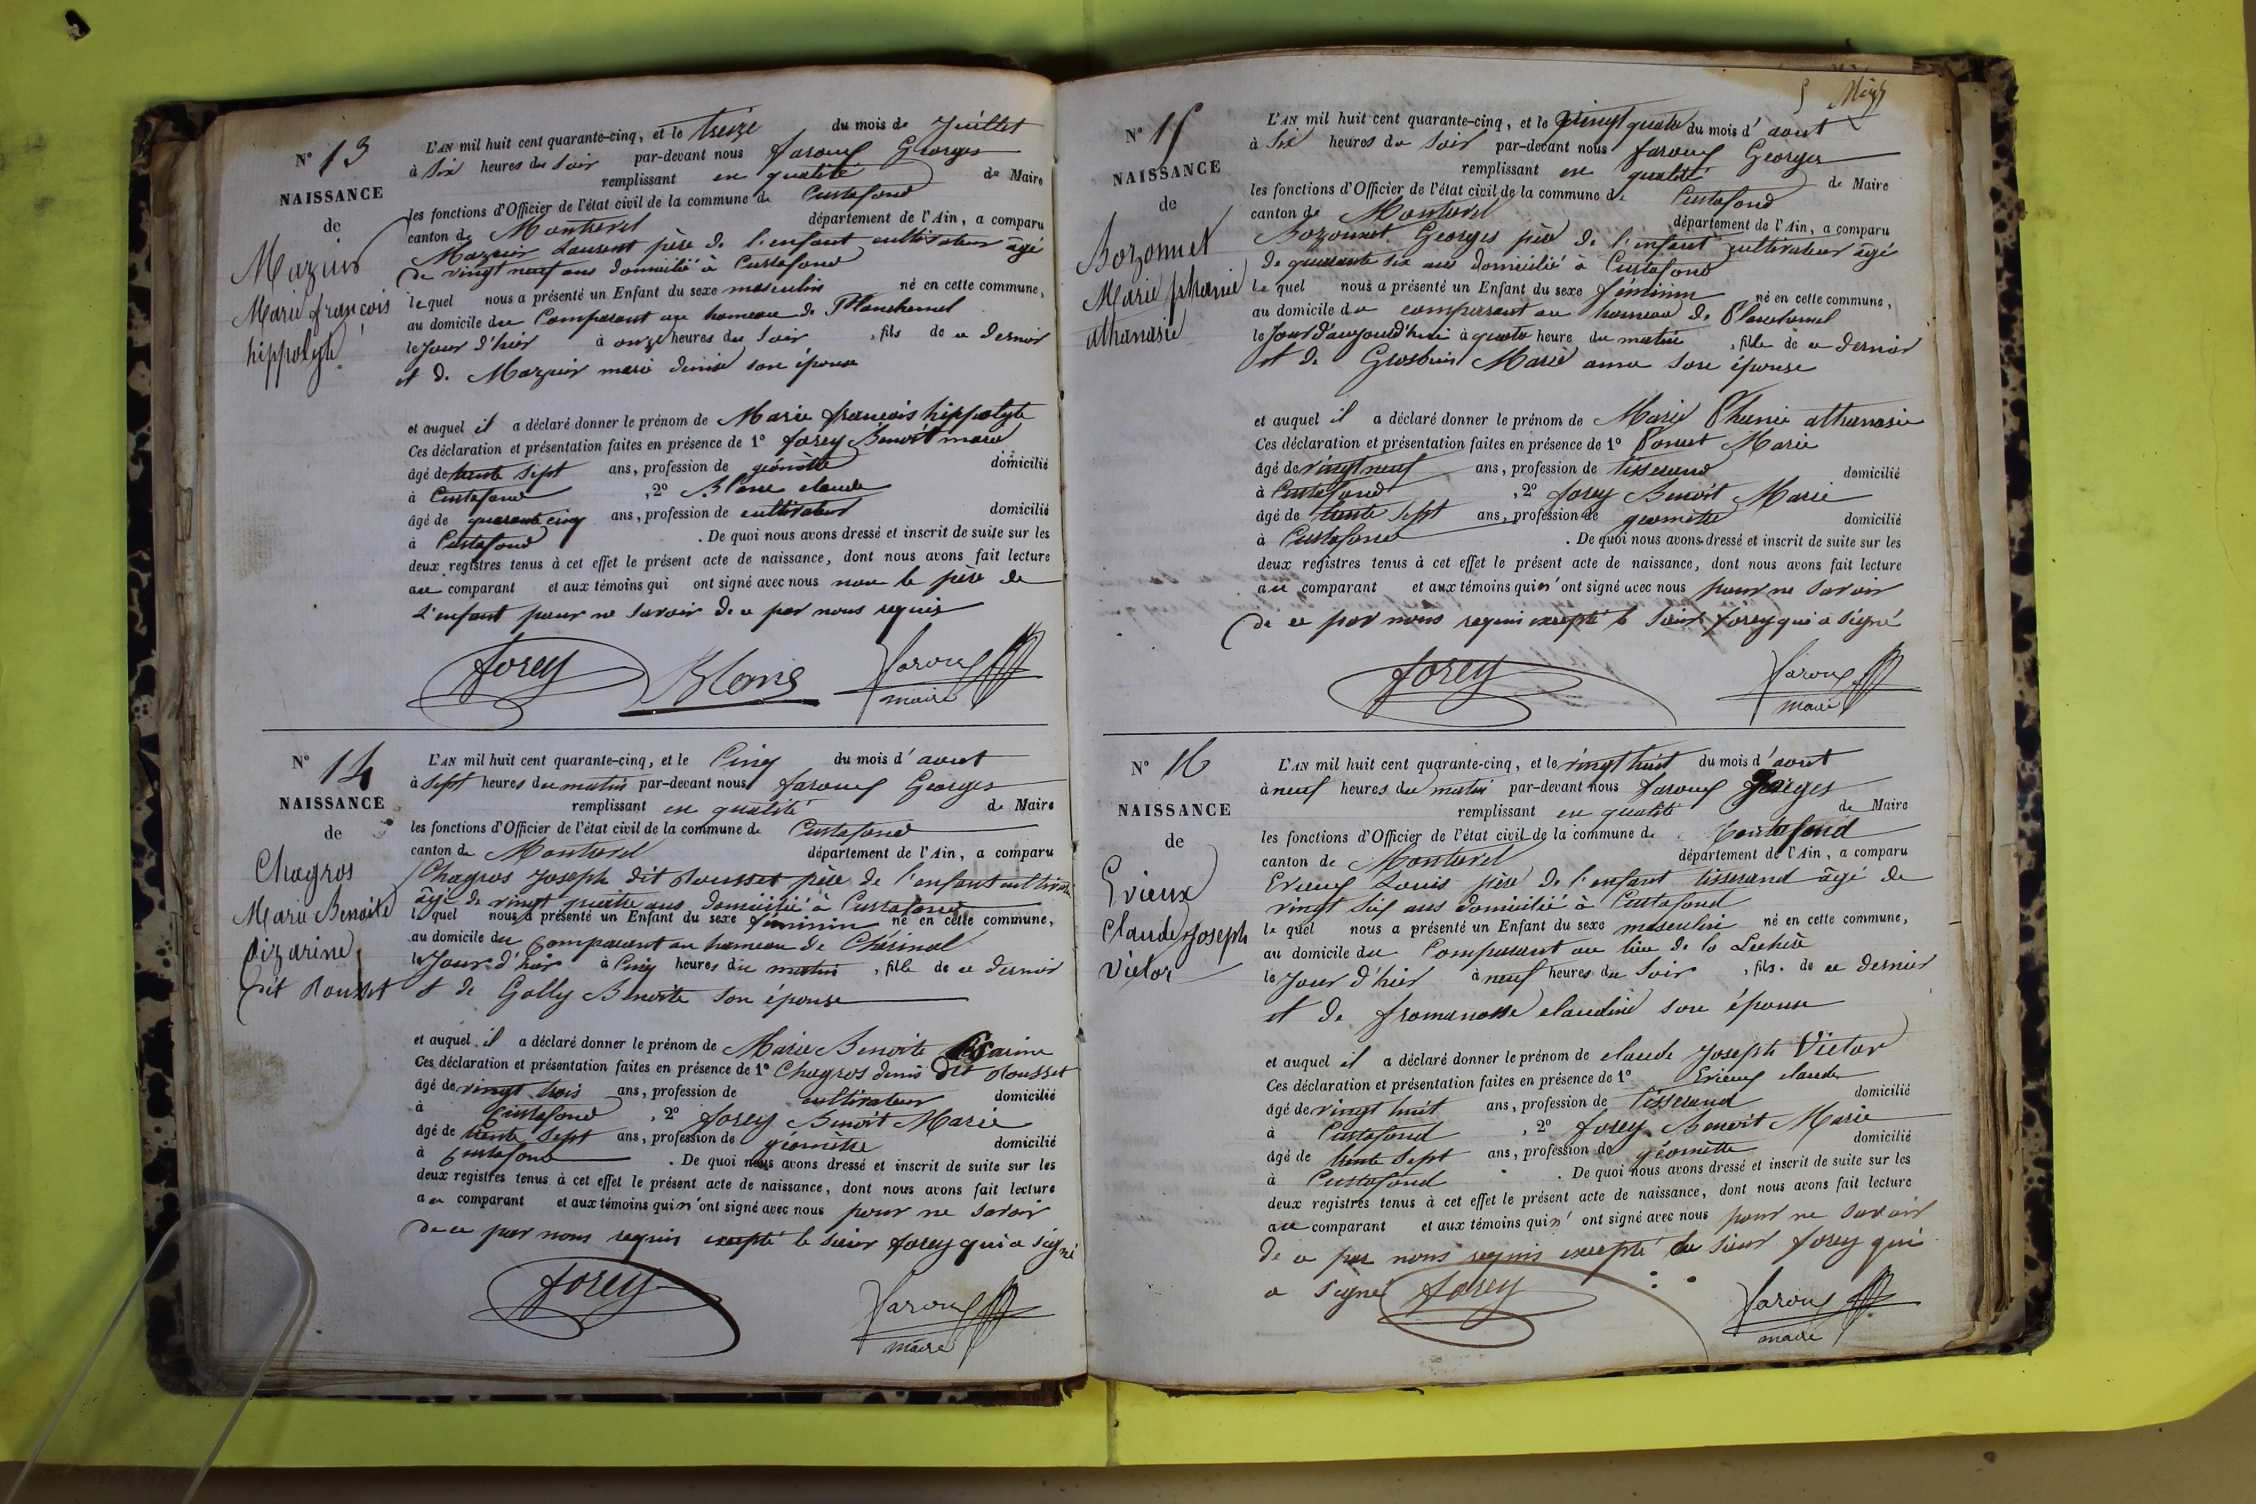 N° 13
NAISSANCE
de
Mazuir
Marie françois
hippolyte
L'AN mil huit cent quarante-cinq, et le treize du mois de Juillet
à Six heures du Soir par-devant nous faroux Georges
remplissant en qualité de Maire
les fonctions d'Officier de l'état civil de la commune de Curtafond
canton de Montrevel département de l'Ain, a comparu
Mazuir Laurent père de l'enfant cultivateur âgé
de vingt neuf ans domicilié à Curtafond
lequel nous a présenté un Enfant du sexe masculin né en cette commune,
au domicile du Comparant au hameau de Planchamel
le Jour d'hier à onze heures du Soir, fils de ce dernier
et de Mazuir marie denise son épouse
et auquel il a déclaré donner le prénom de Marie françois hippolyte
Ces déclaration et présentation faites en présence de 1° forey Benoît marie
âgé de trente sept ans, profession de géomètre domicilié
à Curtafond, 2° Blanc claude
âgé de quarante cinq ans, profession de cultivateur domicilié
à Curtafond. De quoi nous avons dressé et inscrit de suite sur les
deux registres tenus à cet effet le présent acte de naissance, dont nous avons fait lecture
au comparant et aux témoins qui ont signé avec nous non le père de
L'enfant pour ne savoir de ce par nous requis
forey Blanc faroux
maire
N° 14
NAISSANCE
de
Chagros
Marie Benoite
Cizarine
dit Rousset
L'AN mil huit cent quarante-cinq, et le Cinq du mois d'aout
à sept heures du matin par-devant nous faroux Georges
remplissant en qualité de Maire
les fonctions d'Officier de l'état civil de la commune de Curtafond
canton de Montrevel département de l'Ain, a comparu
Chagros Joseph dit Rousset père de l'enfant cultivateur
âgé de vingt quatre ans domicilié à Curtafond
lequel nous a présenté un Enfant du sexe féminin né en cette commune,
au domicile du Comparant au hameau de Chérinal
le Jour d'hier à Cinq heures du matin, fille de ce dernier
et de Golly Benoite son épouse
et auquel il a déclaré donner le prénom de Marie Benoite
Ces déclaration et présentation faites en présence de 1° Chagros denis dit Rousset
âgé de vingt trois ans, profession de cultivateur domicilié
à Curtafond, 2° forey Benoit Marie
âgé de trente sept ans, profession de géomètre domicilié
à Curtafond. De quoi nous avons dressé et inscrit de suite sur les
deux registres tenus à cet effet le présent acte de naissance, dont nous avons fait lecture
au comparant et aux témoins qui n'ont signé avec nous pour ne savoir
de ce par nous requis excepté le sieur forey qui a signé
forey faroux
maire
N° 15
NAISSANCE
de
Bozonnet
Marie phanie
athanasie
L'AN mil huit cent quarante-cinq, et le vingt quatre du mois d'aout
à Six heures du Soir par-devant nous faroux Georges
remplissant en qualité de Maire
les fonctions d'Officier de l'état civil de la commune de Curtafond
canton de Montrevel département de l'Ain, a comparu
Bozonnet Georges père de l'enfant cultivateur âgé
de quarante six ans domicilié à Curtafond
Lequel nous a présenté un Enfant du sexe féminin né en cette commune,
au domicile du comparant au hameau de Planchamel
le Jour d'aujourd'hui à quatre heure du matin, fille de ce dernier
et de Grosbuis Marie anne son épouse
et auquel il a déclaré donner le prénom de Marie Phanie athanasie
Ces déclaration et présentation faites en présence de 1° Ponnet Marie
âgé de vingt neuf ans, profession de tisserand domicilié
à Curtafond, 2° forey Benoit Marie
âgé de trente sept ans, profession de géomètre domicilié
à Curtafond. De quoi nous avons dressé et inscrit de suite sur les
deux registres tenus à cet effet le présent acte de naissance, dont nous avons fait lecture
au comparant et aux témoins qui n'ont signé avec nous pour ne savoir
de ce par nous requis excepté le Sieur forey qui a signé
forey faroux
maire
N° 16
NAISSANCE
de
Erieux
Claude Joseph
Victor
L'AN mil huit cent quarante-cinq, et le vingt huit du mois d'aout
à neuf heures du matin par-devant nous faroux Georges
remplissant en qualité de Maire
les fonctions d'Officier de l'état civil de la commune de Curtafond
canton de Montrevel département de l'Ain, a comparu
Erieux Louis père de l'enfant tisserand âgé de
vingt six ans domicilié à Curtafond
lequel nous a présenté un Enfant du sexe masculin né en cette commune,
au domicile du Comparant au lieu de la Lechère
le Jour d'hier à neuf heures du Soir, fils de ce dernier
et de fromanosse claudine son épouse
et auquel il a déclaré donner le prénom de claude Joseph Victor
Ces déclaration et présentation faites en présence de 1° Erieux claude
âgé de vingt huit ans, profession de tisserand domicilié
à Curtafond, 2° forey Benoit Marie
âgé de trente sept ans, profession de géomètre domicilié
à Curtafond. De quoi nous avons dressé et inscrit de suite sur les
deux registres tenus à cet effet le présent acte de naissance, dont nous avons fait lecture
au comparant et aux témoins qui n'ont signé avec nous pour ne savoir
de ce par nous requis excepté le sieur forey qui
a signé forey faroux
maire